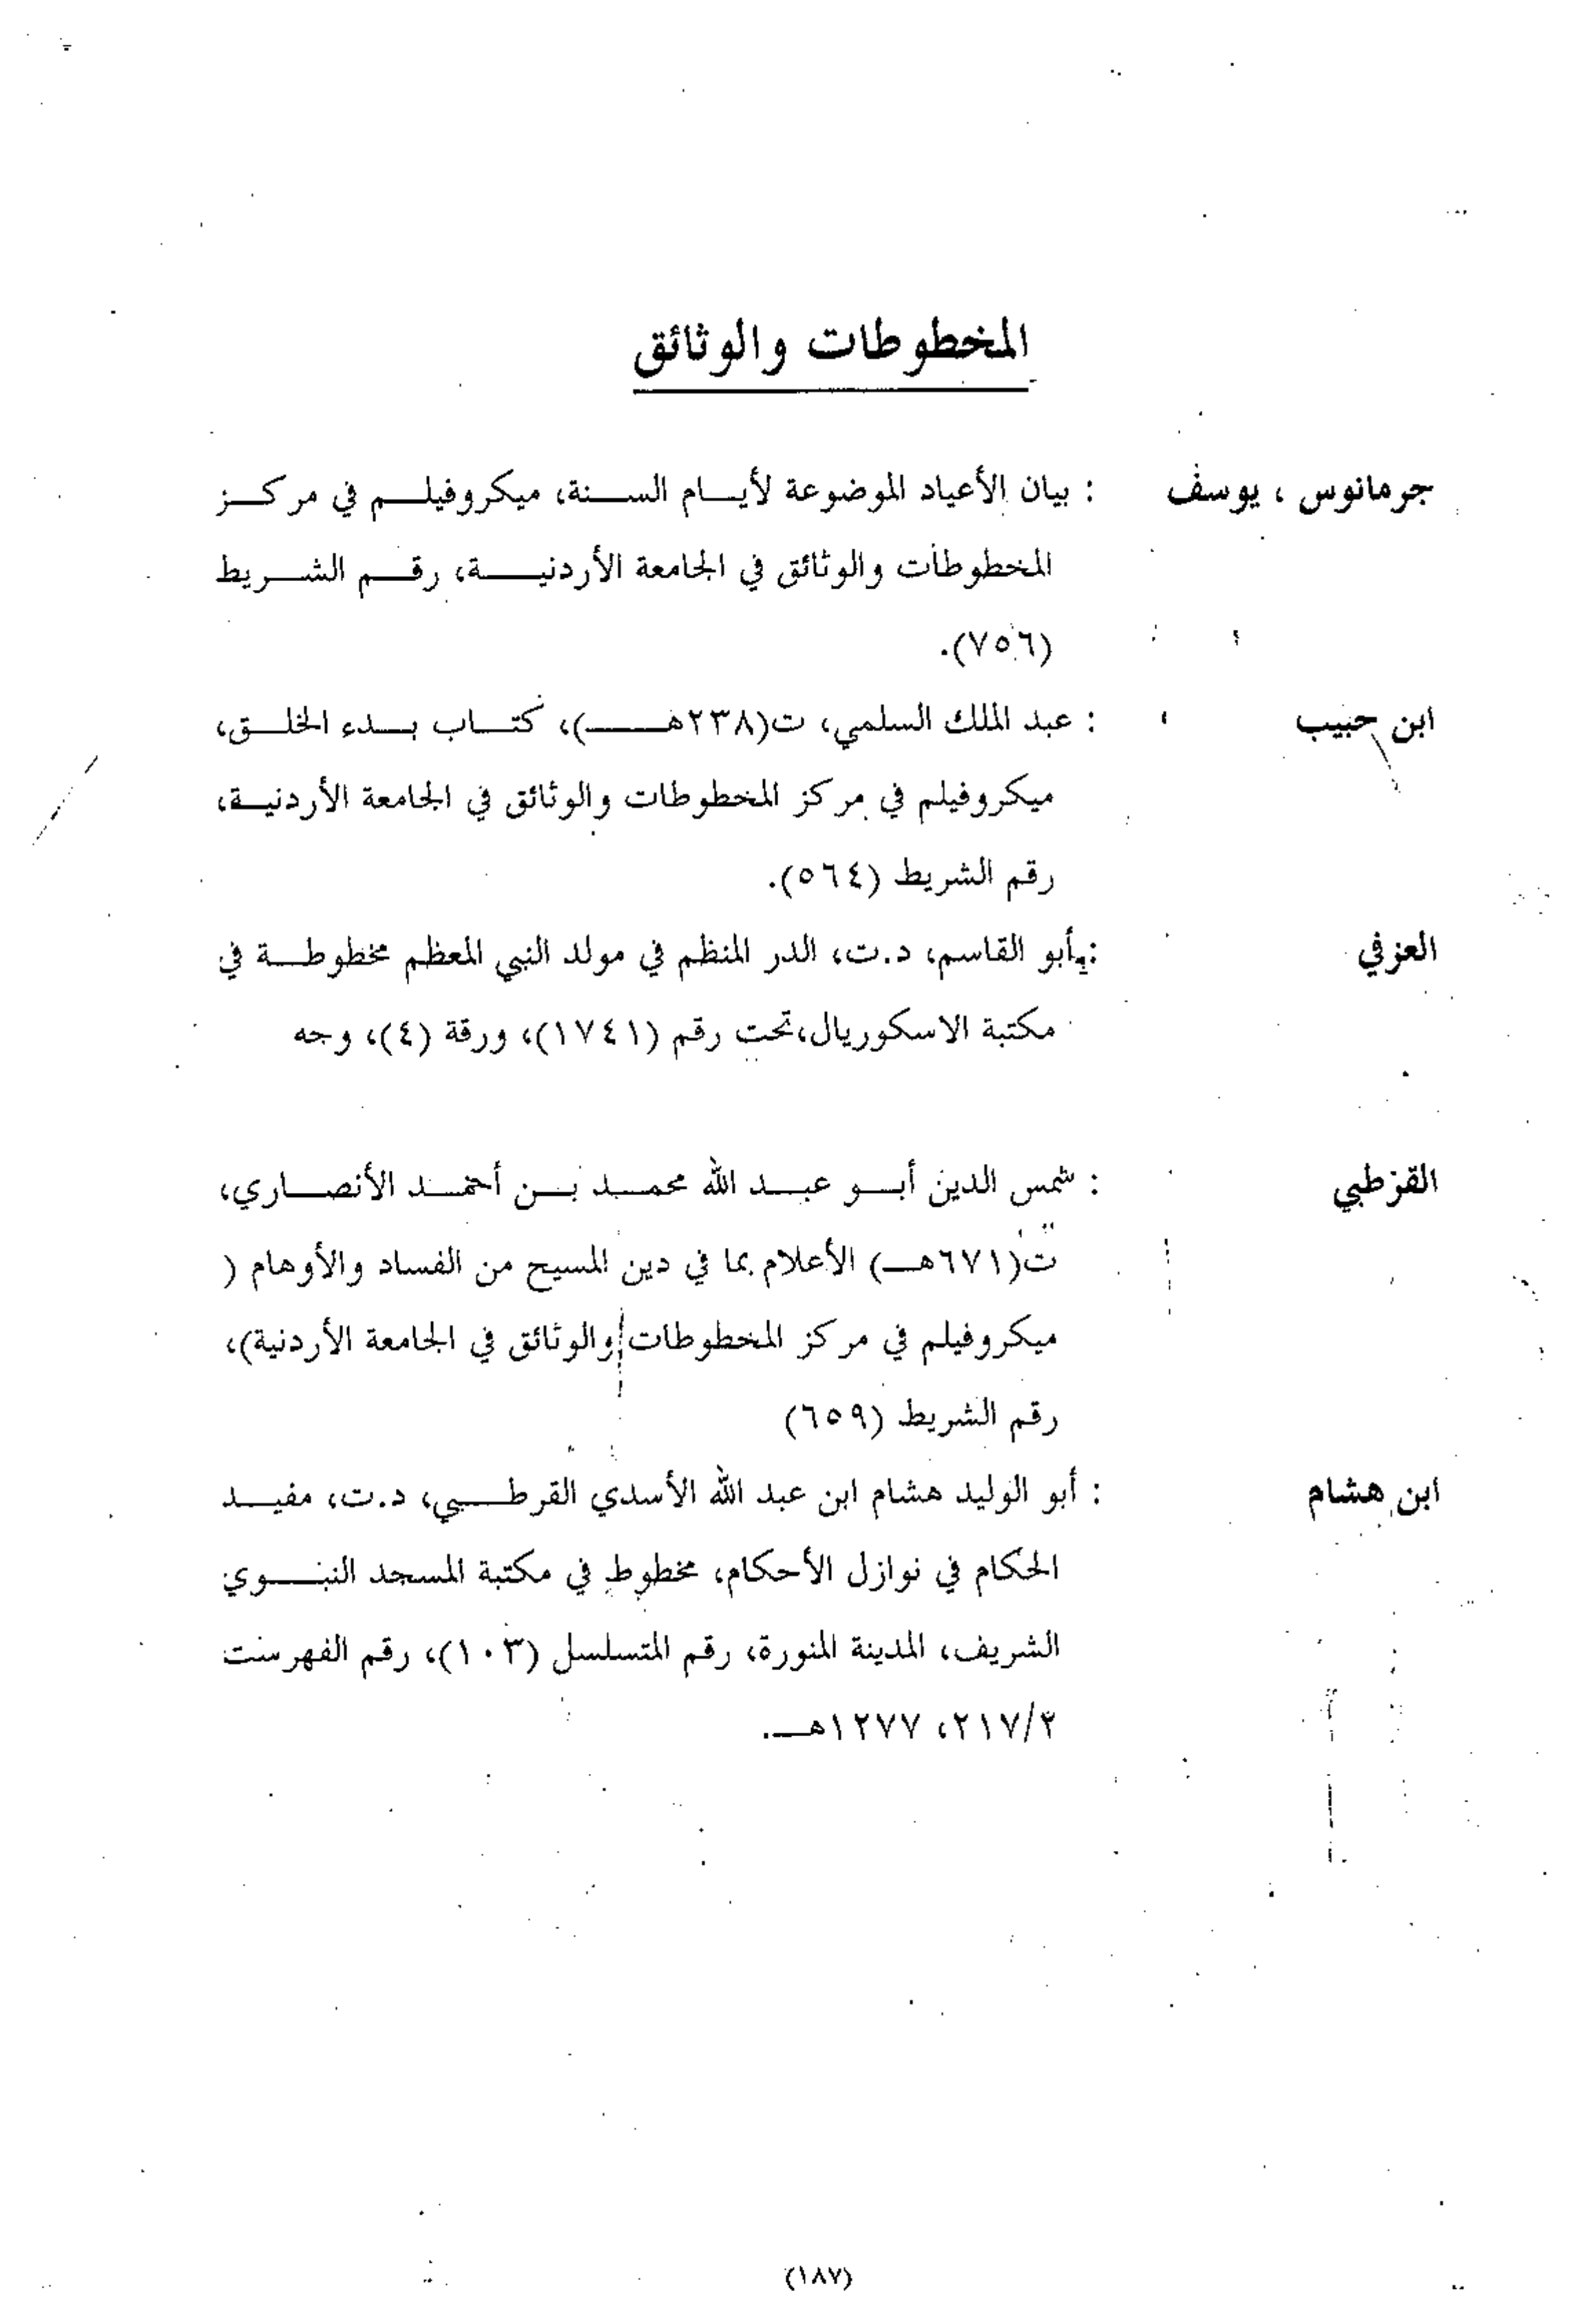 المخطوطات والوثائق
جرمانوس ، يوسف : بيان الأعياد الموضوعة لأيام السنة، ميكروفيلم في مركز
المخطوطات والوثائق في الجامعة الأردنية، رقم الشريط
(٧٥٦).
ابن حبيب : عبد الملك السلمي، ت(٢٣٨هـ)، كتاب بدء الخلق،
ميكروفيلم في مركز المخطوطات والوثائق في الجامعة الأردنية،
رقم الشريط (٥٦٤).
العزفي : أبو القاسم، د.ت، الدر المنظم في مولد النبي المعظم مخطوطة في
مكتبة الاسكوريال،تحت رقم (١٧٤١)، ورقة (٤)، وجه
القرطبي : شمس الدين أبو عبد الله محمد بن أحمد الأنصاري،
ت(٦٧١هـ) الأعلام بما في دين المسيح من الفساد والأوهام (
ميكروفيلم في مركز المخطوطات والوثائق في الجامعة الأردنية)،
رقم الشريط (٦٥٩)
ابن هشام : أبو الوليد هشام ابن عبد الله الأسدي القرطبي، د.ت، مفيد
الحكام في نوازل الأحكام، مخطوط في مكتبة المسجد النبوي
الشريف، المدينة المنورة، رقم المتسلسل (١٠٣)، رقم الفهرست
٢١٧/٢، ١٢٧٧هـ.
(١٨٧)